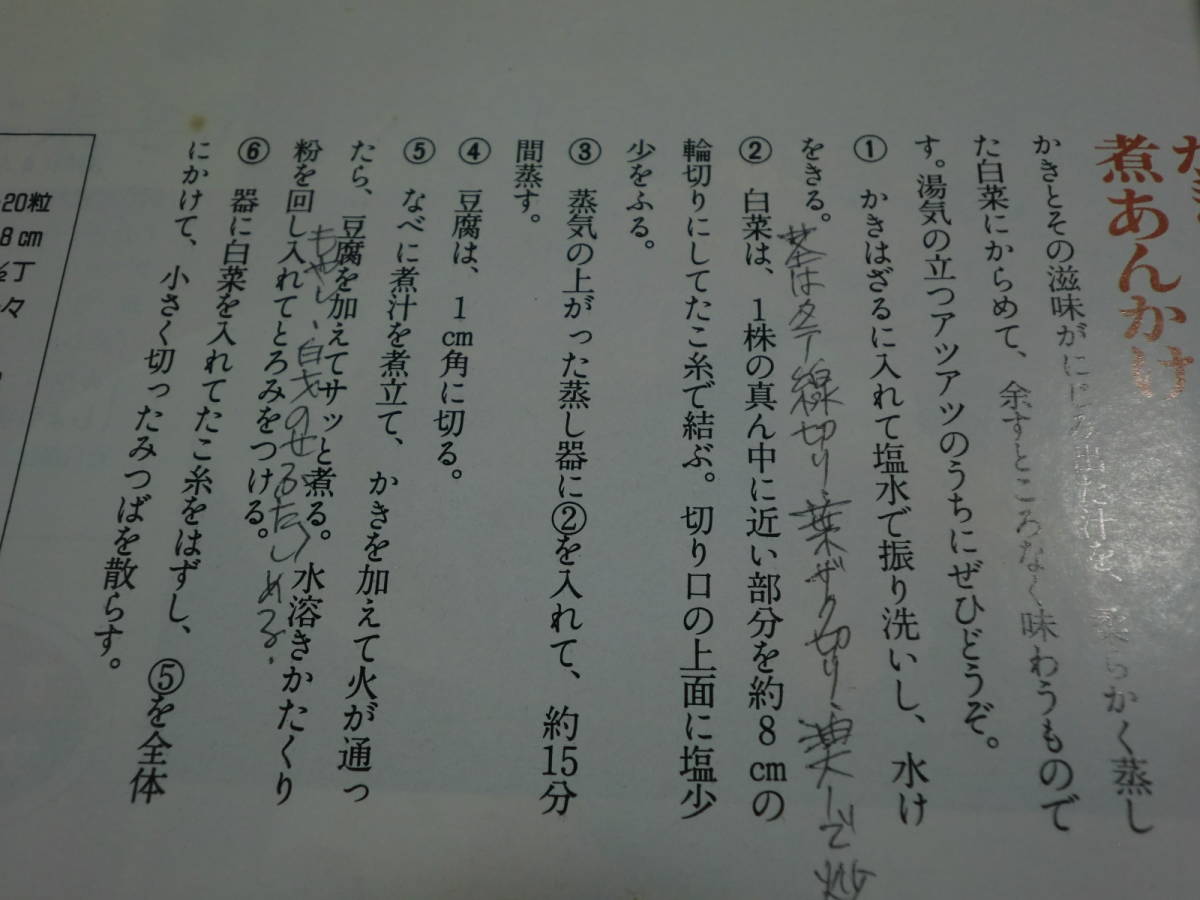 煮あんかけ
かきとその滋味がにじみ出た汁を、柔らかく蒸し
た白菜にからめて、余すところなく味わうもので
す。湯気の立つアツアツのうちにぜひどうぞ。
① かきはざるに入れて塩水で振り洗いし、水け
をきる。
茎はタテ線切り、葉ザク切り、油大1で炒
② 白菜は、1株の真ん中に近い部分を約8cmの
輪切りにしてたこ糸で結ぶ。切り口の上面に塩少
少をふる。
③ 蒸気の上がった蒸し器に②を入れて、約15分
間蒸す。
④ 豆腐は、1cm角に切る。
⑤ なべに煮汁を煮立て、かきを加えて火が通っ
たら、豆腐を加えてサッと煮る。水溶きかたくり
粉を回し入れてとろみをつける。
⑥ 器に白菜を入れてたこ糸をはずし、⑤を全体
にかけて、小さく切ったみつばを散らす。
20粒
8cm
½丁
々